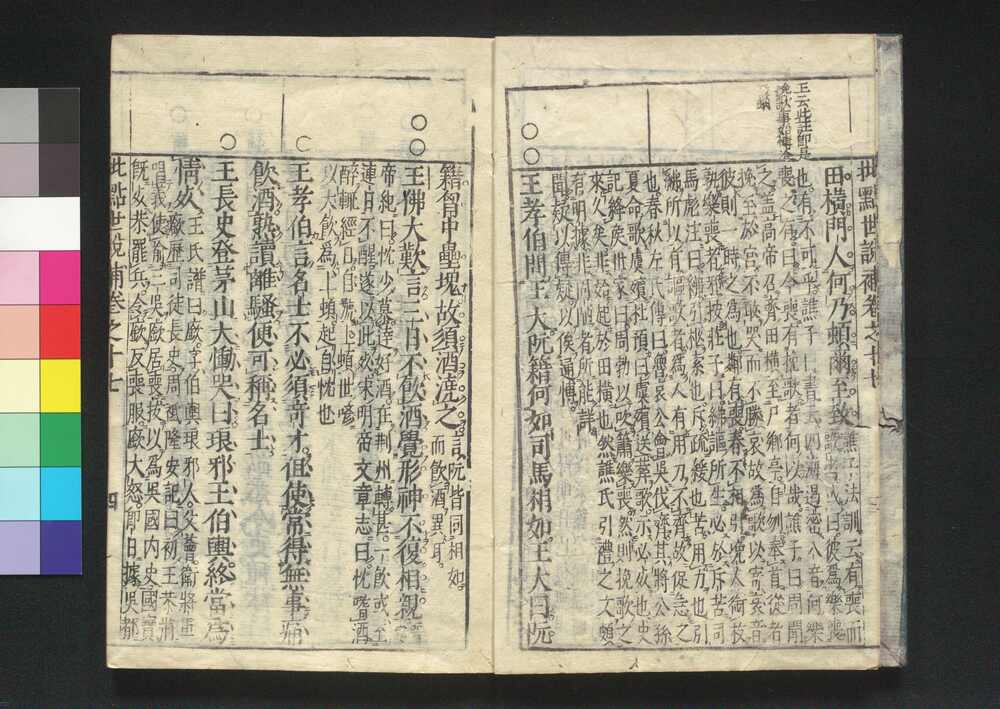 批點世說補卷之十七
田橫門人。何乃頓爾至致。譙子法訓云。有喪而
歌者。或曰。彼爲樂喪
也。有不可乎。譙子曰。書云。四海遏密八音。何樂
喪之有。曰。今喪有挽歌者。何以哉。譙子曰。周聞
之。蓋高帝召齊田橫。至尸鄉亭。自刎奉首。從者
挽至於宮。不敢哭。而不勝哀。故爲歌以寄哀音。
彼則一時之爲也。鄰有喪。舂不相。引挽人銜枚。
孰樂喪者邪。按莊子曰。紼謳所生。必於斥苦。司
馬彪注曰。紼。引柩索也。斥。疏緩也。苦。用力也。引
紼所以有謳歌者。爲人有用力不齊。故促急之
也。春秋左氏傳曰。魯哀公會吳伐齊。其將公孫
夏命歌虞殯。杜預曰。虞殯。送葬歌。示必死也。史
記絳侯世家曰。周勃以吹簫樂喪。然則挽歌之
來久矣。非始起於田橫也。然譙氏引禮之文。頗
有明據。非固陋者所能詳。
聞疑以傳疑。以俟通博。
王孝伯問王大。阮籍何如司馬相如。王大曰。阮
籍胷中壘塊。故須酒澆之。言阮皆同相如。
而飲酒異耳。
王佛大歎言。三日不飲酒。覺形神不復相親。
帝紀曰。忱少慕達。好酒。在荆州轉甚。一飲或至
連日不醒。遂以此死。宋明帝文章志曰。忱嗜酒
醉輒經日。自號上頓。世喭
以大飲爲上頓。起自忱也
王孝伯言。名士不必須奇才。但使常得無事。痛
飲酒。熟讀離騷。便可稱名士。
王長史登茅山。大慟哭曰。琅邪王伯輿。終當爲
情死。王氏譜曰。廞字伯輿。琅邪人。父薈。衛將軍。
廞歷司徒長史。周祗隆安記曰。初王恭將
唱義使喻三吳。廞居喪。拔以爲吳國內史。國寶
旣死。恭罷兵。令廞反喪服。廞大怒。卽日據吳都
批點世說補卷之十七
四